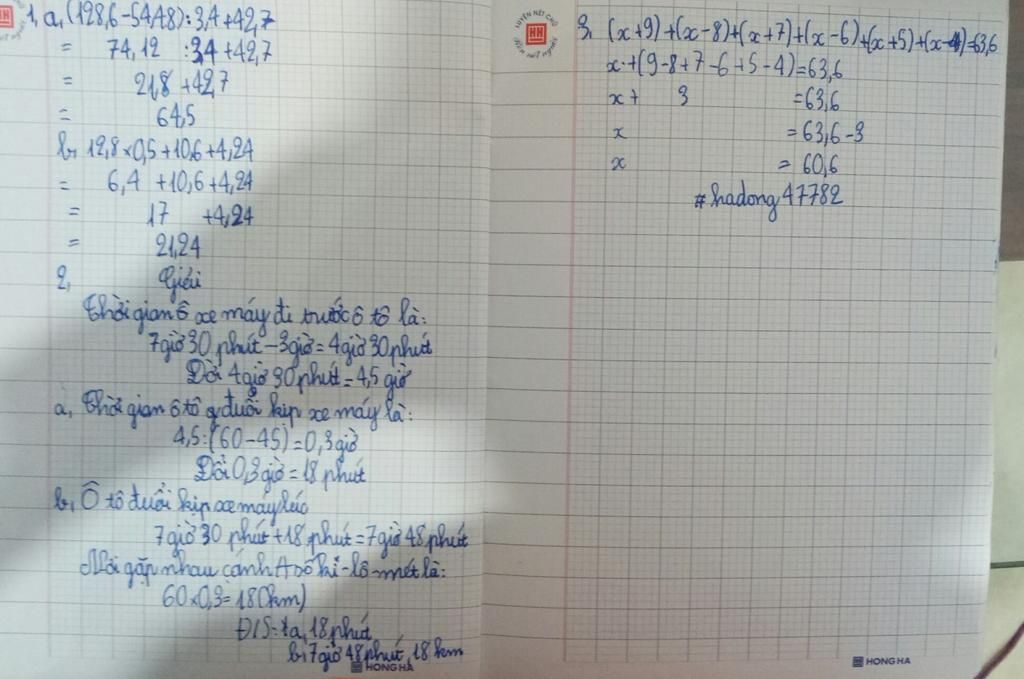 1, a, (128,6-54,48):3,4+42,7
= 74,12 :3,4+42,7
= 21,8 +42,7
= 64,5
b, 12,8×0,5+10,6+4,24
= 6,4 +10,6+4,24
= 17 +4,24
= 21,24
2, Giải
Thời gian ô xe máy đi trước ô tô là:
7giờ 30 phút-3giờ=4giờ30phút
Đổi 4giờ 30phút=4,5 giờ
a, Thời gian ô tô đuổi kịp xe máy là:
4,5:(60-45)=0,3giờ
Đổi 0,3giờ=18 phút
b, Ô tô đuổi kịp xe máy lúc
7giờ 30 phút+18 phút=7giờ 48phút
Nơi gặp nhau cánh A số ki-lô-mét là:
60×0,3=18(km)
Đ/S: a, 18 phút
b, 7giờ 48phút, 18 km
HONG HA
LUYỆN NÉT CHỮ
HH
Rèn nết người
3, (x+9)+(x-8)+(x+7)+(x-6)+(x+5)+(x-4)=63,6
x+(9-8+7-6+5-4)=63,6
x+ 3 =63,6
x =63,6-3
x = 60,6
#hadong47782
HONG HA